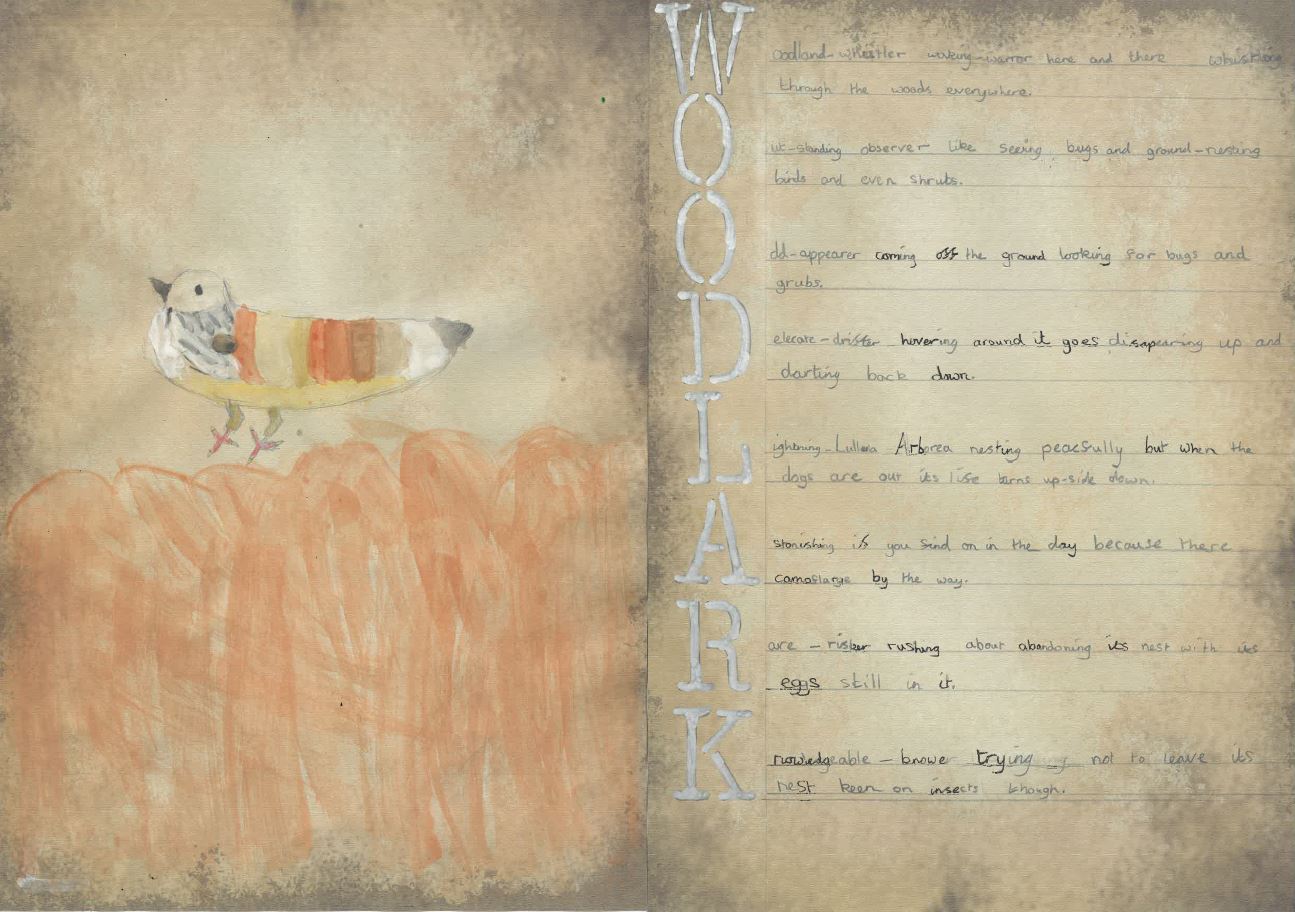 Woodland-whistler waving-warror here and there whistling
through the woods everywhere.
Out-standing observer like seeing bugs and ground-nesting
birds and even shrubs.
Odd-appearer coming off the ground looking for bugs and
grubs.
Delecate-drifter hovering around it goes disapearing up and
darting back down.
Lightning-Lullula Arborea nesting peacfully but when the
dogs are out its life turns up-side down.
Astonishing if you find on in the day because there
camoflarge by the way.
Rare - risker rushing about abandoning its nest with its
eggs still in it.
Knowledgeable - knower trying not to leave its
nest keen on insects though.